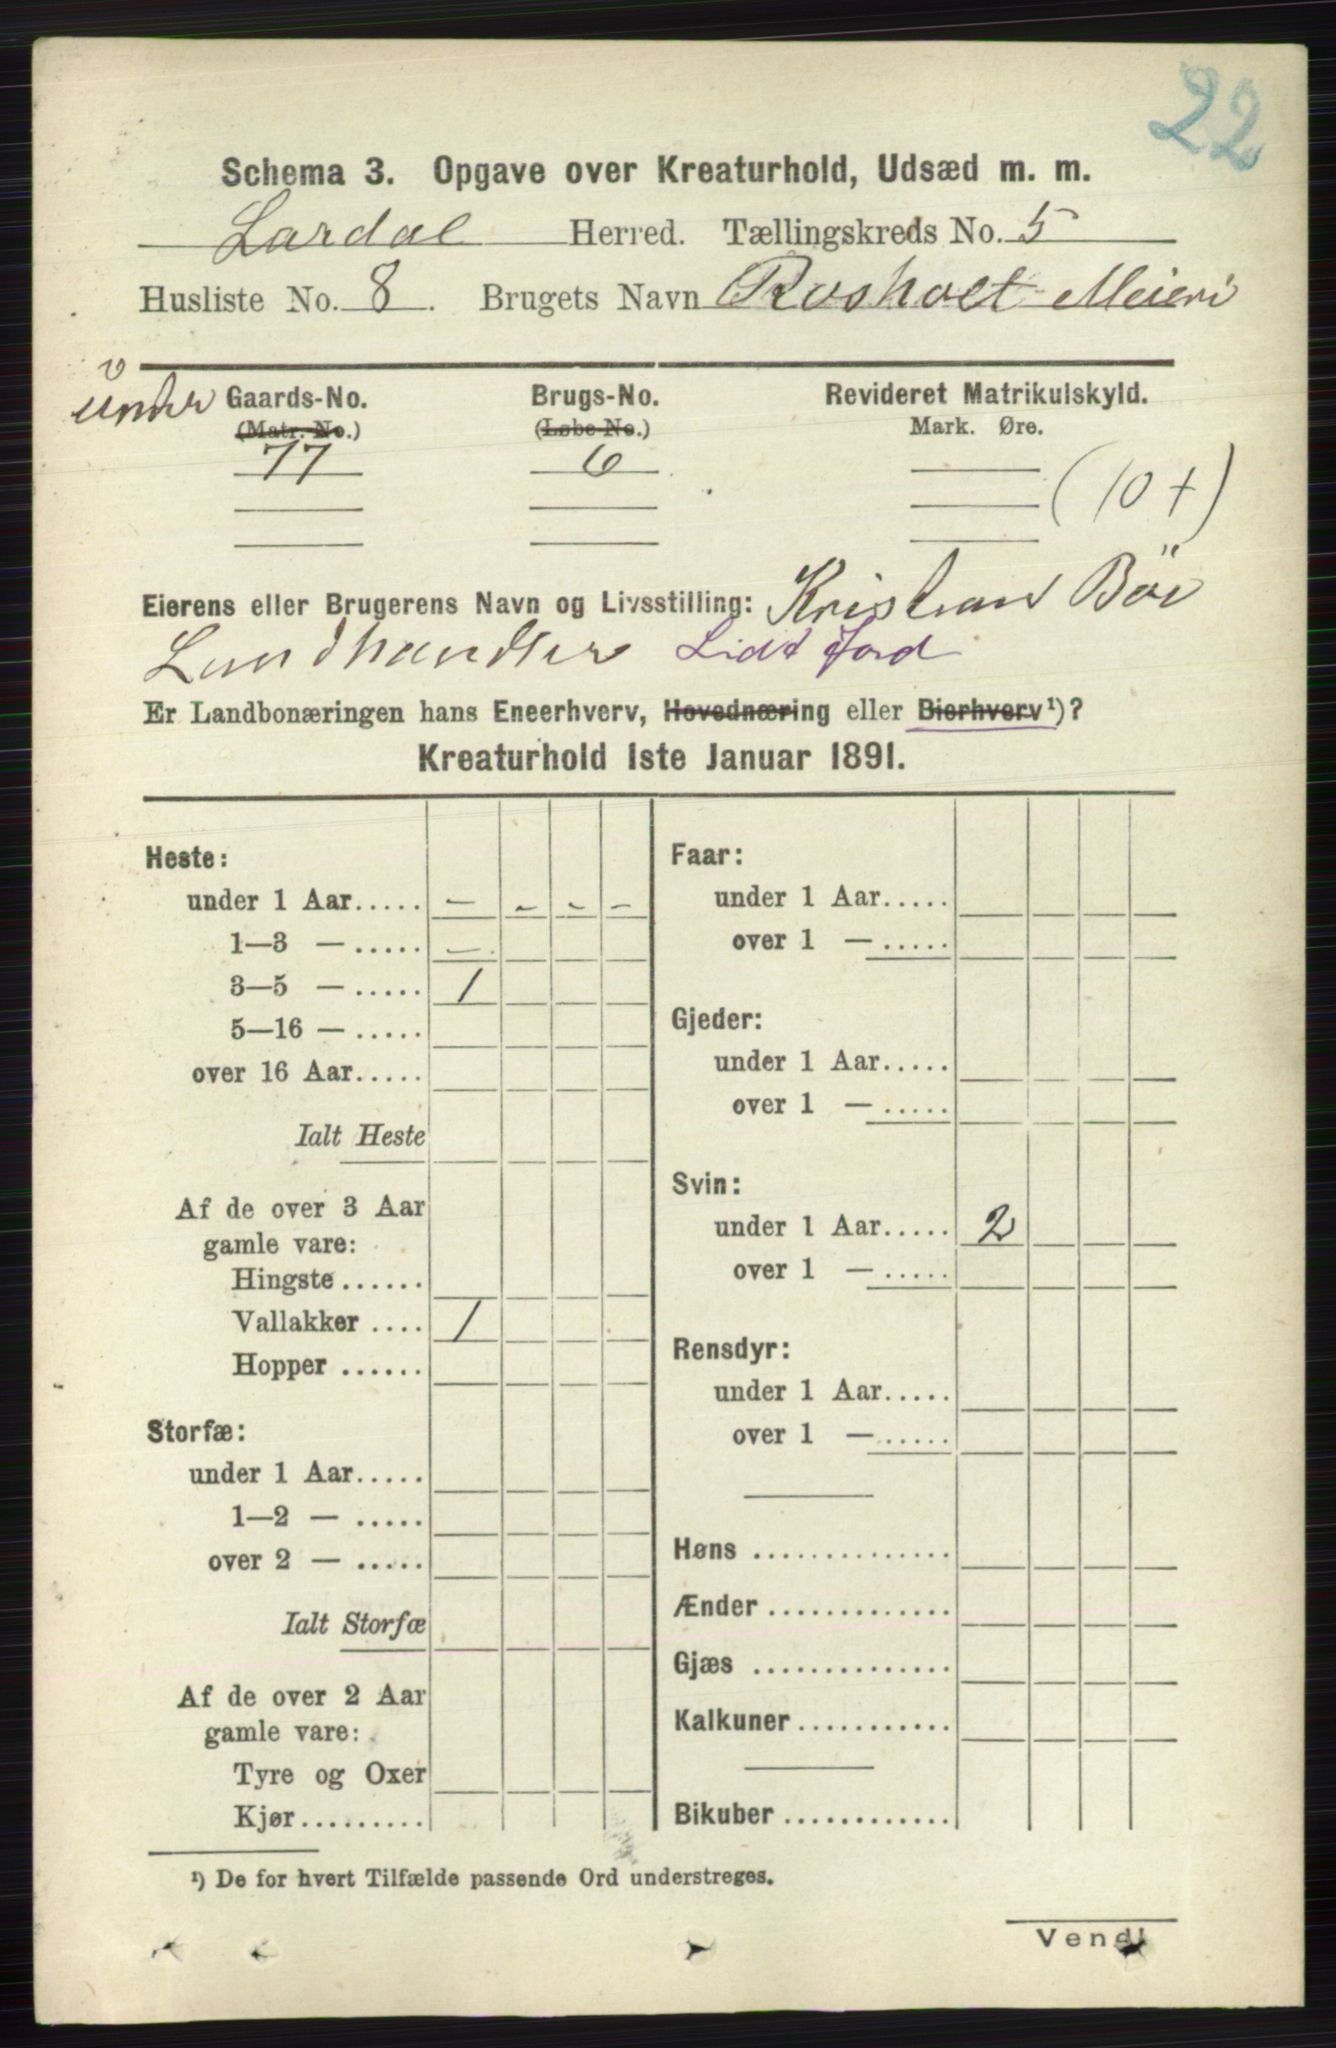 22
Schema 3. Opgave over Kreaturhold, Udsæd m. m.
Lardal Herred. Tællingskreds No. 5
Husliste No. 8. Brugets Navn Rosholt Meieri
under
Gaards-No. Brugs-No. Revideret Matrikulskyld.
(Matr. No.) (Løbe-No.) Mark. Øre.
77 6
(10 +)
Eierens eller Brugerens Navn og Livsstilling: Kristian Böe
Landhandler Lidt Jord
Er Landbonæringen hans Eneerhverv, Hovednæring eller Bierhverv¹)?
Kreaturhold 1ste Januar 1891.
Heste:
under 1 Aar..... — - - -
1—3 — ..... —
3—5 — ..... 1
5—16 — .....
over 16 Aar.....
Ialt Heste
Af de over 3 Aar
gamle vare:
Hingste......
Vallakker .... 1
Hopper ......
Storfæ:
under 1 Aar.....
1—2 — .....
over 2 — .....
Ialt Storfæ
Af de over 2 Aar
gamle vare:
Tyre og Oxer
Kjør.........
Faar:
under 1 Aar.....
over 1 — .....
Gjeder:
under 1 Aar.....
over 1 — .....
Svin:
under 1 Aar..... 2
over 1 — .....
Rensdyr:
under 1 Aar.....
over 1 — ......
Høns ..............
Ænder .............
Gjæs ..............
Kalkuner ...........
Bikuber ............
¹) De for hvert Tilfælde passende Ord understreges.
Vend!